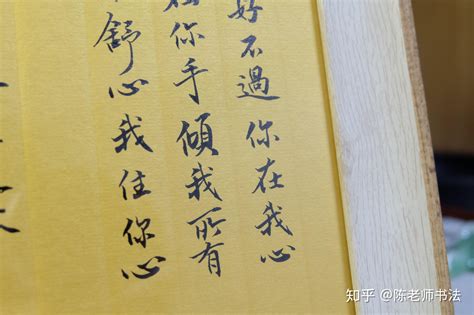 好不過你在我心
在你手傾我所有
舒心我住你心
知乎 @陈老师书法